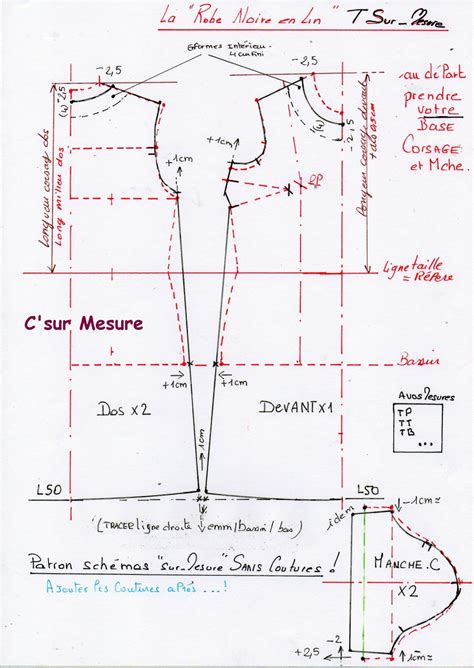 La "Robe Noire en Lin" T Sur_Mesure
6 formes Intérieur.
4 cm fini
-2,5
-2,5
-2,5
-2,5
(4)
(4)
au déPart
prendre
votre
Base
CORSAGE
et Mche.
+1cm
+1cm
Longueur corsage dos
Long milieu dos
Longueur corsage devant
Ligne taille
= Repère
C'sur Mesure
Bassin
+1cm
+1cm
DOS X2
DEVANT X1
1cm
A vos Mesures
TP
TT
TB
...
L50
L50
(TRACER ligne droite emm/bassin/bas)
-1cm
idem
Patron schémas "sur-Mesure" SANS COUTURES !
Ajouter les Coutures après...!
MANCHE.C
X2
+2,5
-2
1cm